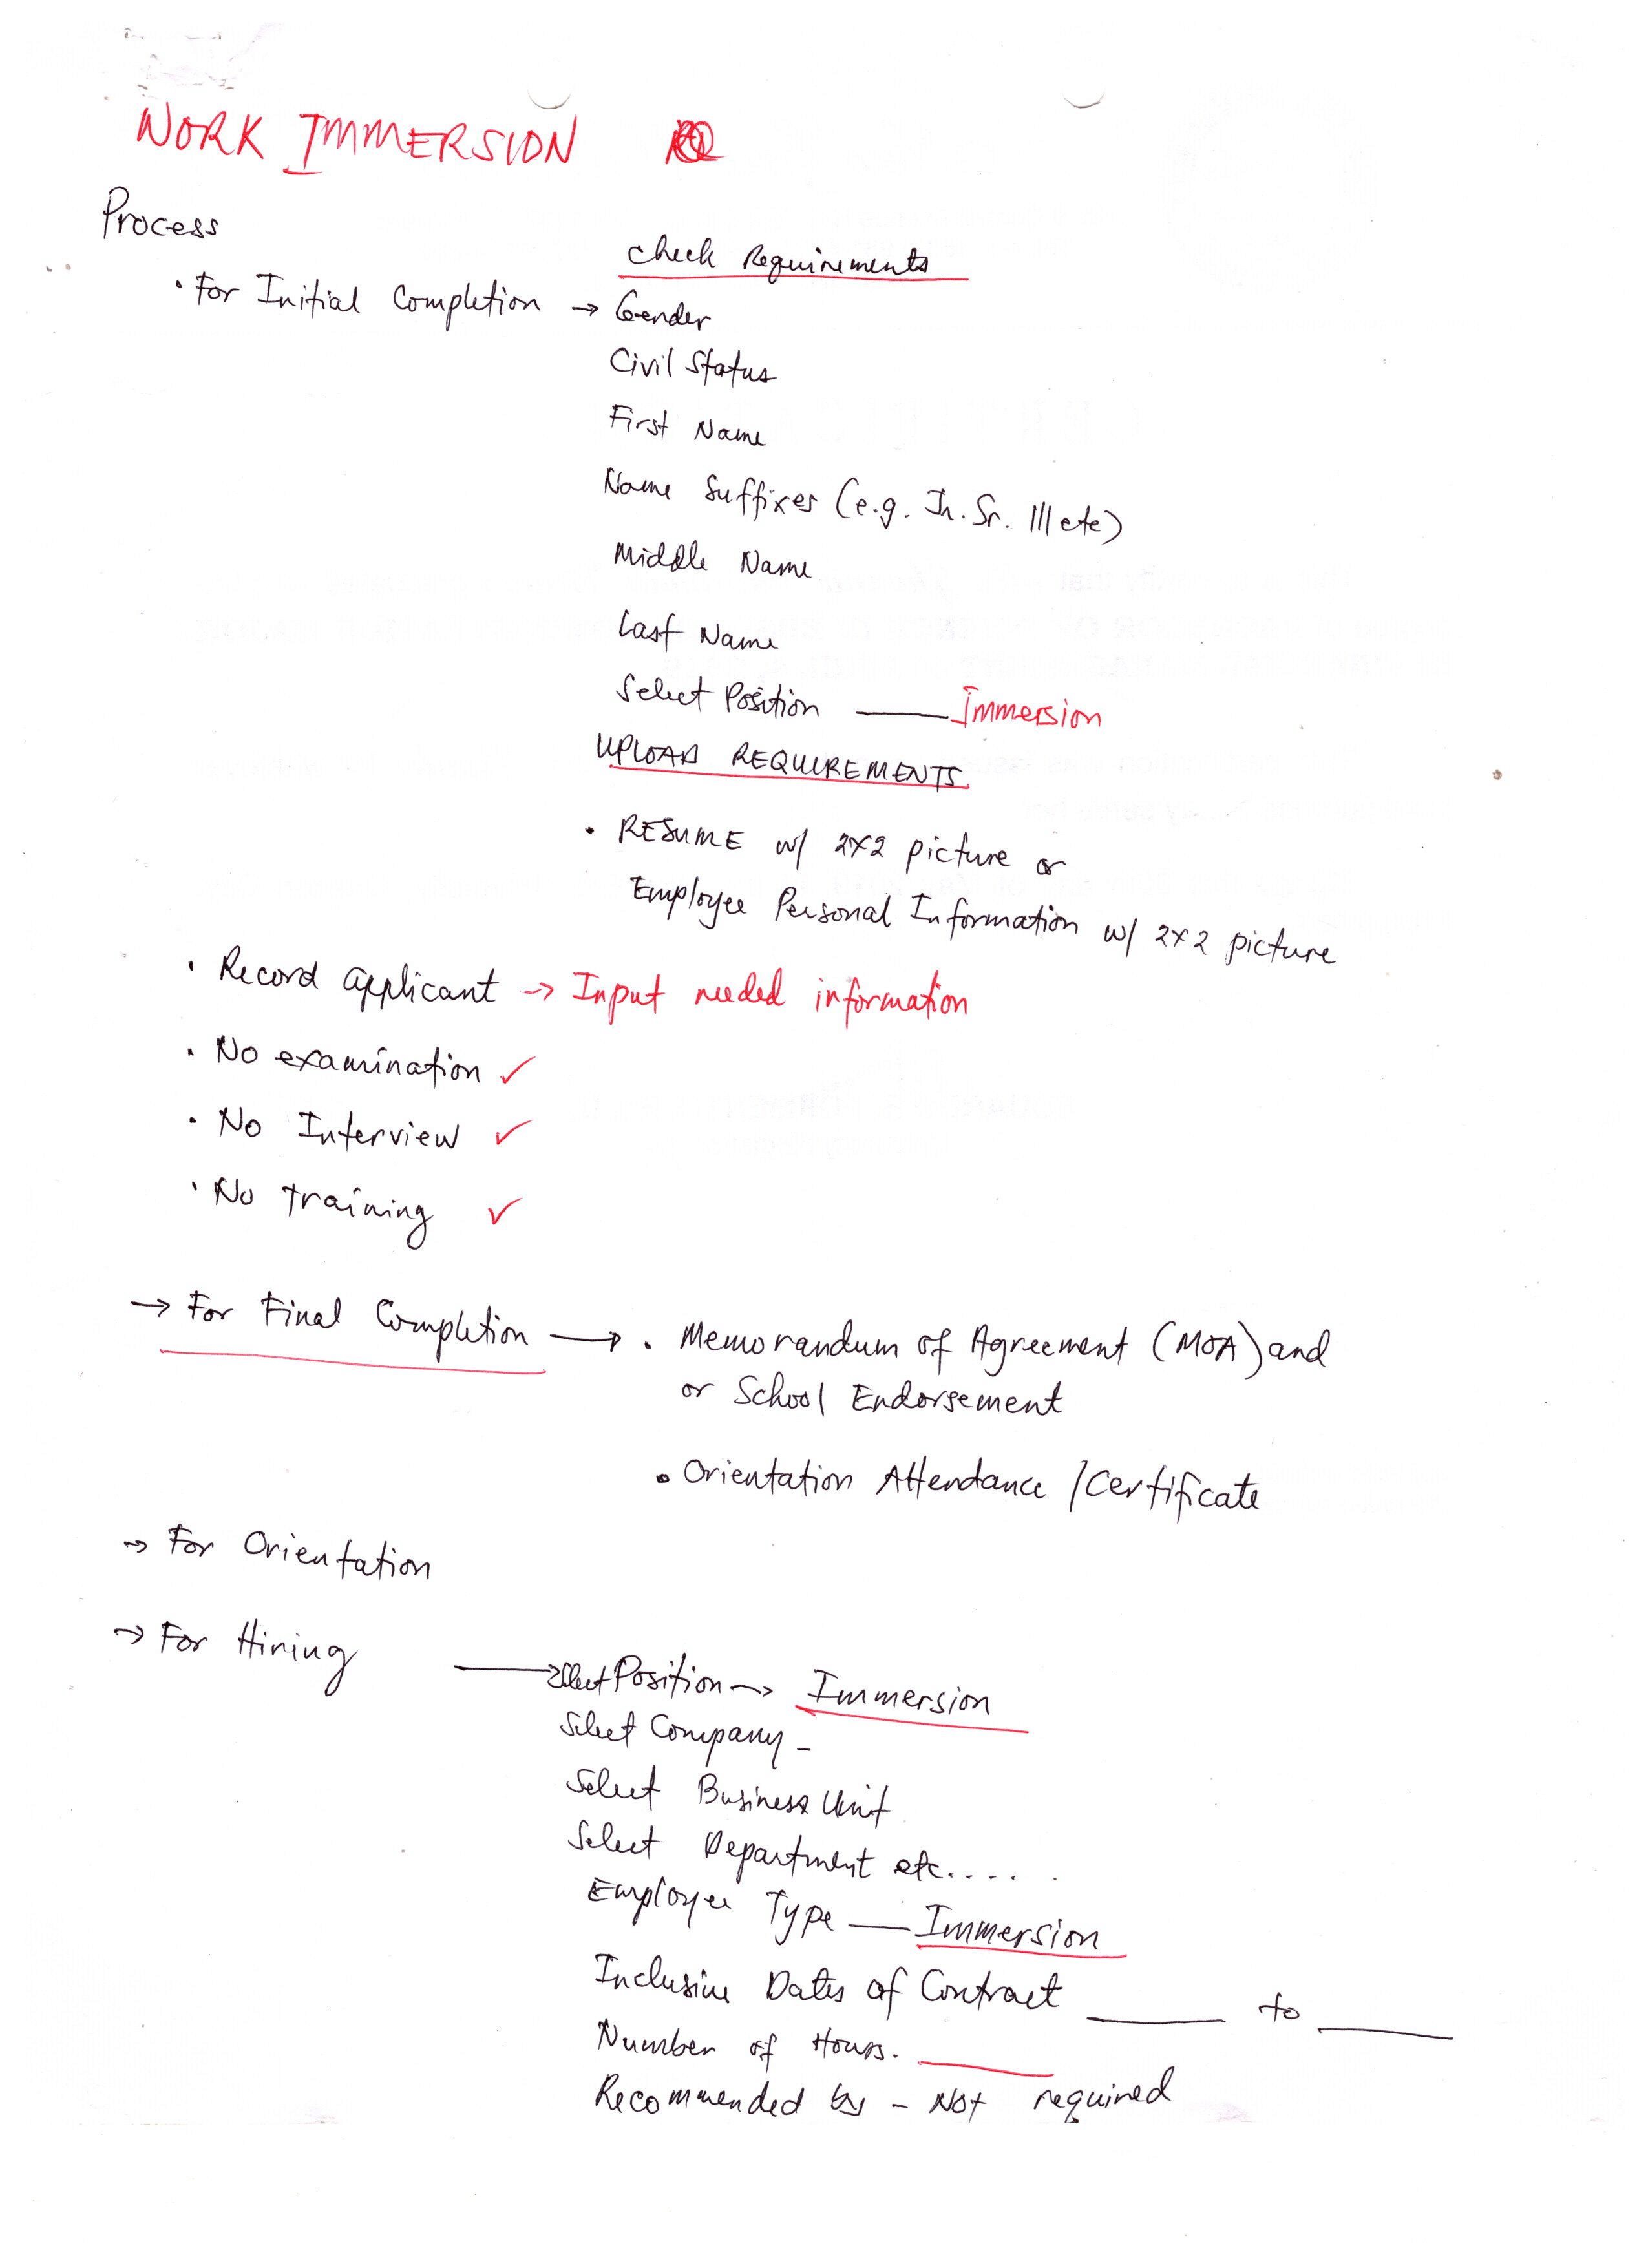 WORK IMMERSION
Process
check Requirements
• For Initial Completion → Gender
Civil Status
First Name
Name Suffixes (e.g. Jr. Sr. III etc)
Middle Name
Last Name
Select Position —— Immersion
UPLOAD REQUIREMENTS
• RESUME w/ 2x2 picture or
Employee Personal Information w/ 2x2 picture
• Record applicant → Input needed information
• No examination ✓
• No Interview ✓
• No training ✓
→ For Final Completion → • Memorandum of Agreement (MOA) and
or School Endorsement
• Orientation Attendance / Certificate
→ For Orientation
→ For Hiring
→ Select Position → Immersion
Select Company -
Select Business Unit
Select Department etc.....
Employee Type —— Immersion
Inclusive Dates of Contract ______ to ______
Number of Hours. ______
Recommended by - Not required